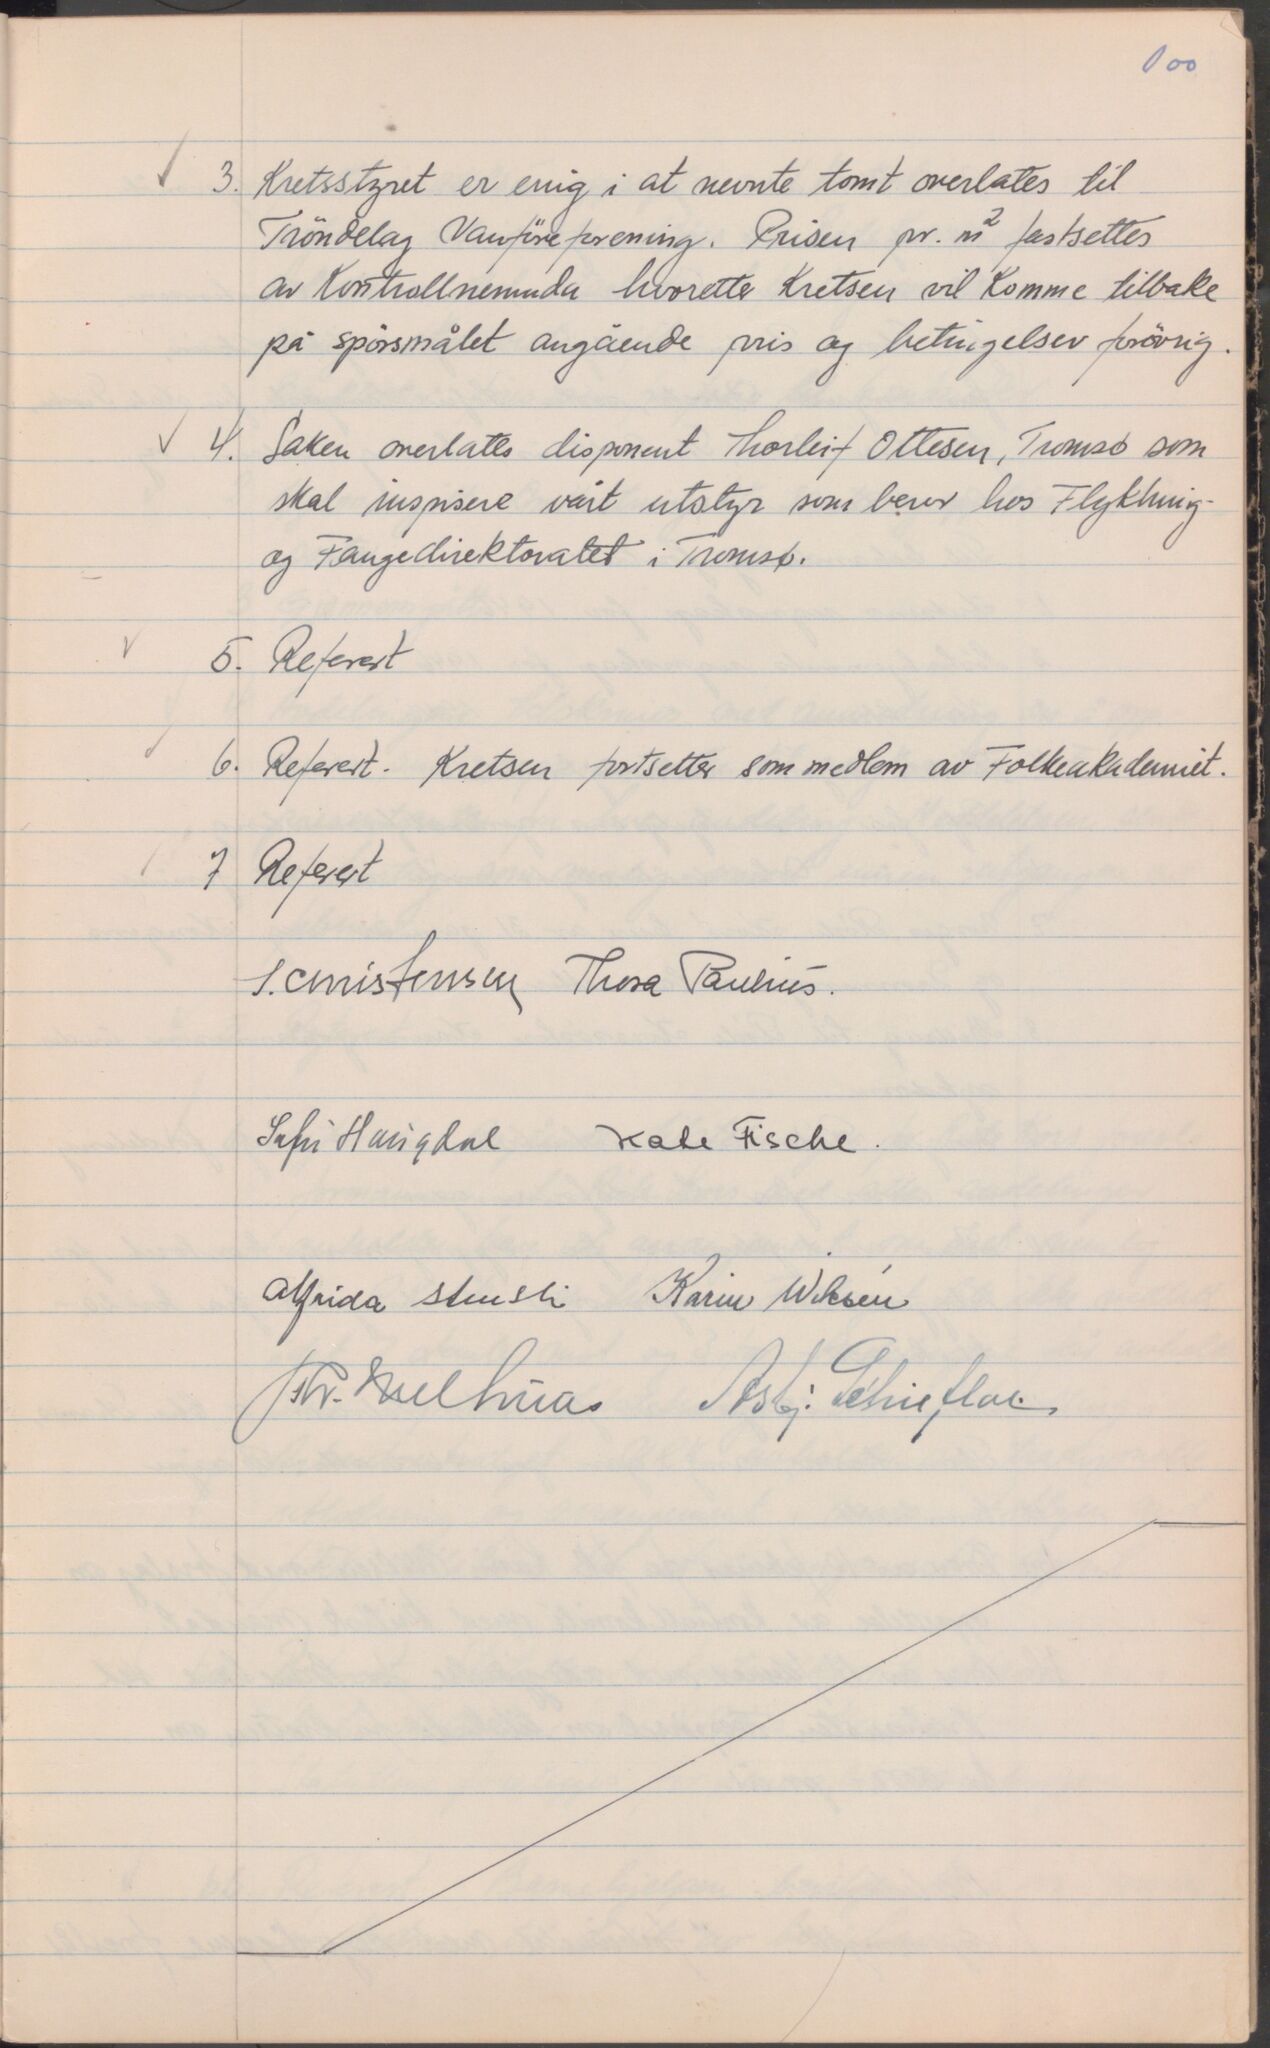 100
3. Kretsstyret er enig i at nevnte tomt overlates til
Tröndelag Vanföreforening. Prisen pr. m² fastsettes
av Kontrollnemnda hvoretter Kretsen vil komme tilbake
på spörsmålet angående pris og betingelser forövrig.
4. Saken overlates disponent Thorleif Ottesen, Tromsø som
skal inspisere vårt utstyr som beror hos Flyktning-
og Fangedirektoratet i Tromsø.
5. Referert
6. Referert. Kretsen fortsetter som medlem av Folkeakademiet.
7 Referert
S. Christensen Thora Paulius.
Haugdal Kate Fische.
Alfrida Stensli Karin Wiksén
Asbj.